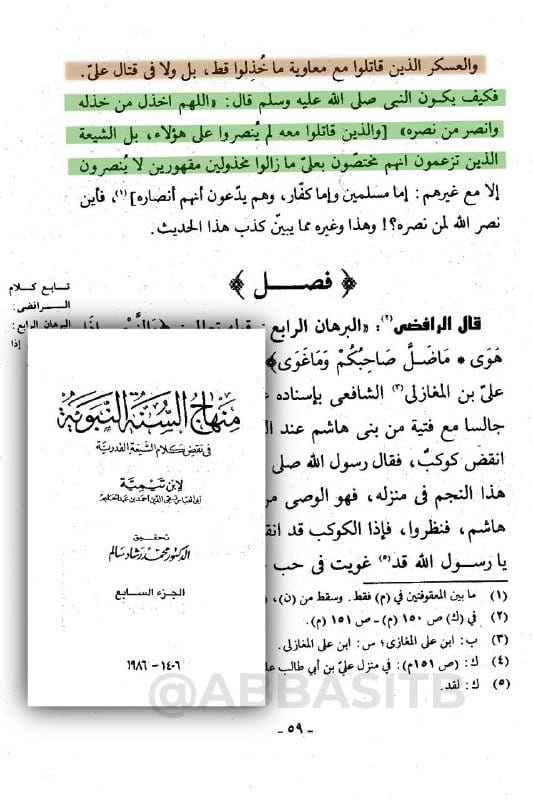 والعسكر الذين قاتلوا مع معاوية ما خُذِلوا قط، بل ولا فى قتال علىّ.
فكيف يكون النبى صلى الله عليه وسلم قال: «اللهم اخذل من خذله
وانصر من نصره» [والذين قاتلوا معه لم يُنصروا على هؤلاء، بل الشيعة
الذين تزعمون أنهم مختصّون بعلىّ ما زالوا مخذولين مقهورين لا يُنصرون
إلا مع غيرهم: إما مسلمين وإما كفّار، وهم يدّعون أنهم أنصاره](١)، فأين
نصر الله لمن نصره؟! وهذا وغيره مما يبيّن كذب هذا الحديث.
﴿ فصــل ﴾
تابع كلام
الرافضى:
البرهان الرابع:
إذا
قال الرافضى(٢): «البرهان الرابع: قوله تعالى:
هَوَى * مَاضَلَّ صَاحِبُكُمْ وَمَاغَوَى﴾
علىّ بن المغازلى(٣) الشافعى بإسناده
جالسا مع فتية من بنى هاشم عند
انقض كوكبٌ، فقال رسول الله صلى
هذا النجم فى منزله، فهو الوصى
هاشم، فنظروا، فإذا الكوكب قد
يا رسول الله قد(٥) غويت فى حب
(١) ما بين المعقوفتين فى (م) فقط. وسقط من (ن)،
(٢) فى (ك) ص ١٥٠ (م) - ص ١٥١ (م).
(٣) ب: ابن على المغازى؛ س: ابن على المغازلى.
(٤) ك: (ص ١٥١م): فى منزل علىّ بن أبي طالب
(٥) ك: لقد.
- ٥٩ -
منهاج السنة النبوية
فى نقض كلام الشيعة القدرية
لابن تيمية
أبى العباس تقى الدين أحمد بن عبد الحليم
تحقيق
الدكتور محمد رشاد سالم
الجزء السابع
١٤٠٦ - ١٩٨٦
@ABBASITB